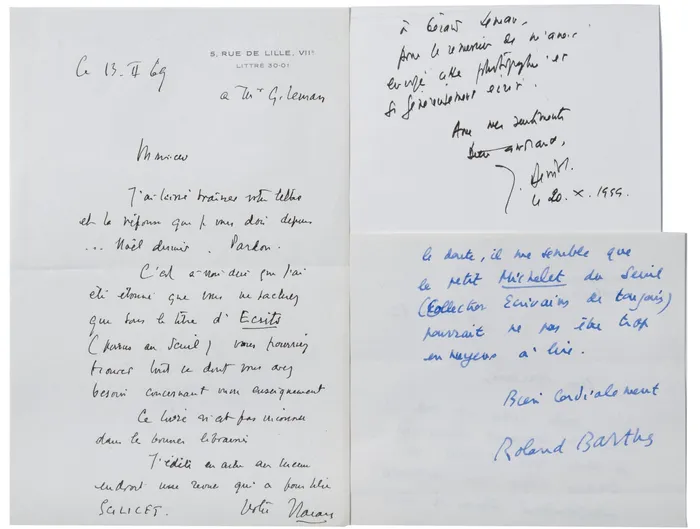 5, RUE DE LILLE, VIIe
LITTRÉ 30-01
ce 13. II 69
a Mr G. Leman
Monsieur
J'ai laissé traîner votre lettre
et la réponse que je vous dois depuis
... Noël dernier. Pardon.
C'est à vous dire que j'ai
été étonné que vous ne sachiez
que sous le titre d'Ecrits
(parus au Seuil) vous pourriez
trouver tout ce dont vous avez
besoin concernant mon enseignement
Ce livre n'est pas inconnu
dans les bonnes librairies
J'édite en outre au même
endroit une revue qui a pour titre
SCILICET. Votre Lacan
à Gérard Leman,
pour le remercier de m'avoir
envoyé cette photographie et
si généreusement écrit.
Avec mes sentiments
J. Derrida
le 20. X. 1999.
le doute, il me semble que
le petit Michelet du Seuil
(Collection Ecrivains de toujours)
pourrait ne pas être trop
ennuyeux à lire.
Bien cordialement
Roland Barthes